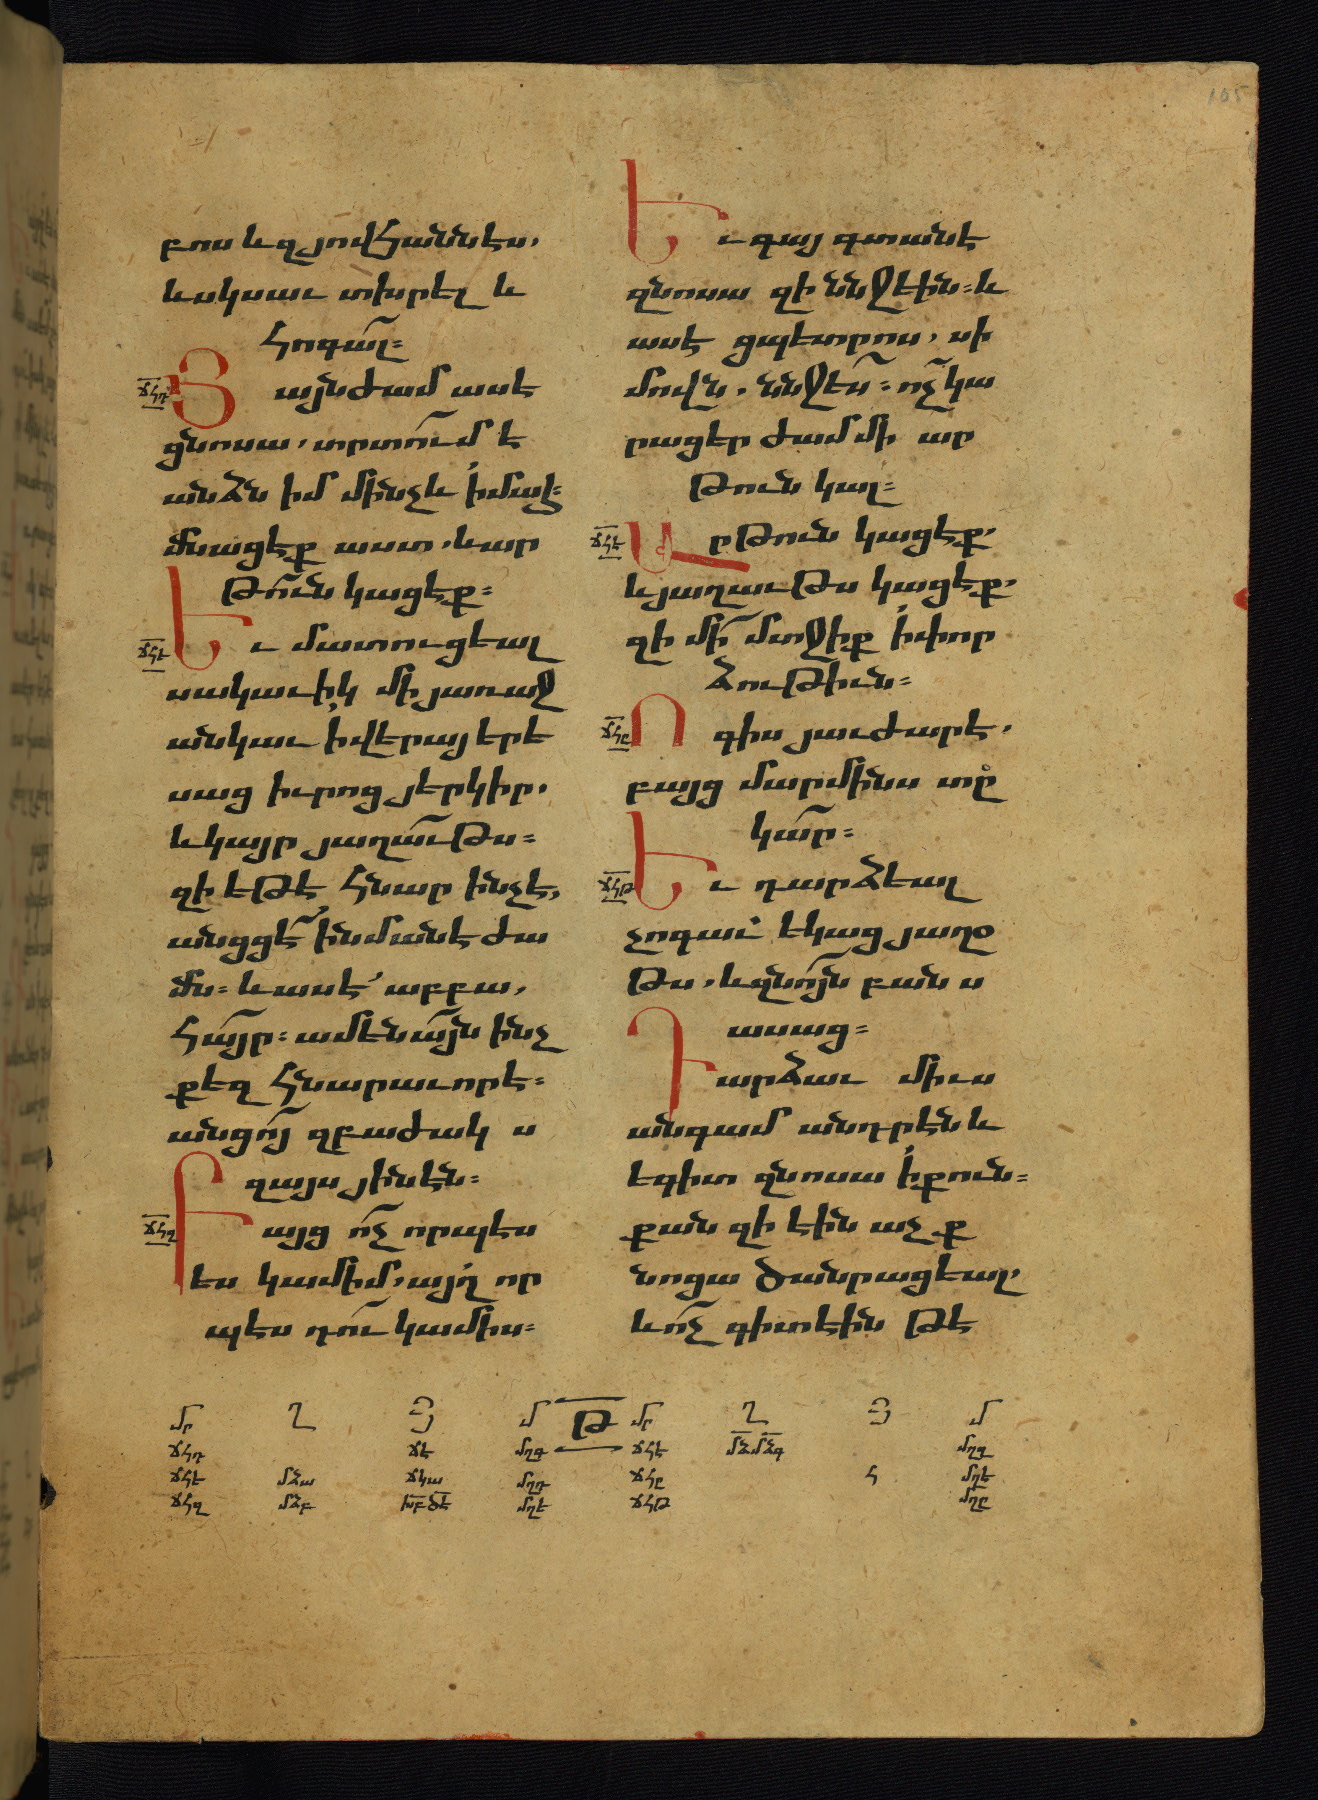 105
բոս և զյովհաննես,
և սկսաւ տխրել և
հոգալ։
ՃՀԴ
Յայնժամ ասե
ցնոսա, տրտում է
անձն իմ մինչև ի մահ։
մնացեք աստ, և ար
թուն կացեք։
ՃՀԵ
Եւ մատուցեալ
սակաւիկ մի յառաջ
անկաւ ի վերայ երե
սաց իւրոց յերկիր,
և կայր յաղաւթս։
զի եթե հնար ինչ է,
անցցե ինմանե ժա
մն։ և ասե աբբա,
հայր։ ամենայն ինչ
քեզ հնարաւոր է։
անցոյ զբաժակ ս
զայս յինեն։
ՃՀԶ
Բայց ոչ որպես
ես կամիմ, այղ որ
պես դու կամիս։
Եւ գայ գտանե
զնոսա զի ննջեին։ և
ասե ցպետրոս, սի
մովն, ննջես։ ոչ կա
րացեր ժամ մի ար
թուն կալ։
ՃՀԷ
Արթուն կացեք,
և յաղաւթս կացեք,
զի մի մտջիք ի փոր
ձութիւն։
ՃՀԸ
Ոգիս յաւժար է,
բայց մարմինս տը
կար։
ՃՀԹ
Եւ դարձեալ
չոգաւ եկաց յաղօ
թս, և զնոյն բան ս
ասաց։
Դարձաւ միւս
անգամ անդրեն և
եգիտ զնոսա ի քուն։
քան զի էին աչ ք
նոցա ծանրացեալ,
և ոչ գիտեին թե
Մր Ղ Յ Մ Թ Մր Ղ Յ Մ
ՃՀԴ ՃԷ ՄՂԳ ՃՀԷ ՄՁ ՄՁԳ ՄՂԶ
ՃՀԵ ՄՁԱ ՃԿԱ ՄՂԴ ՃՀԸ Հ ՄՂԷ
ՃՀԶ ՄՁԲ ԽԲ ԾԷ ՄՂԵ ՃՀԹ ՄՂԸ